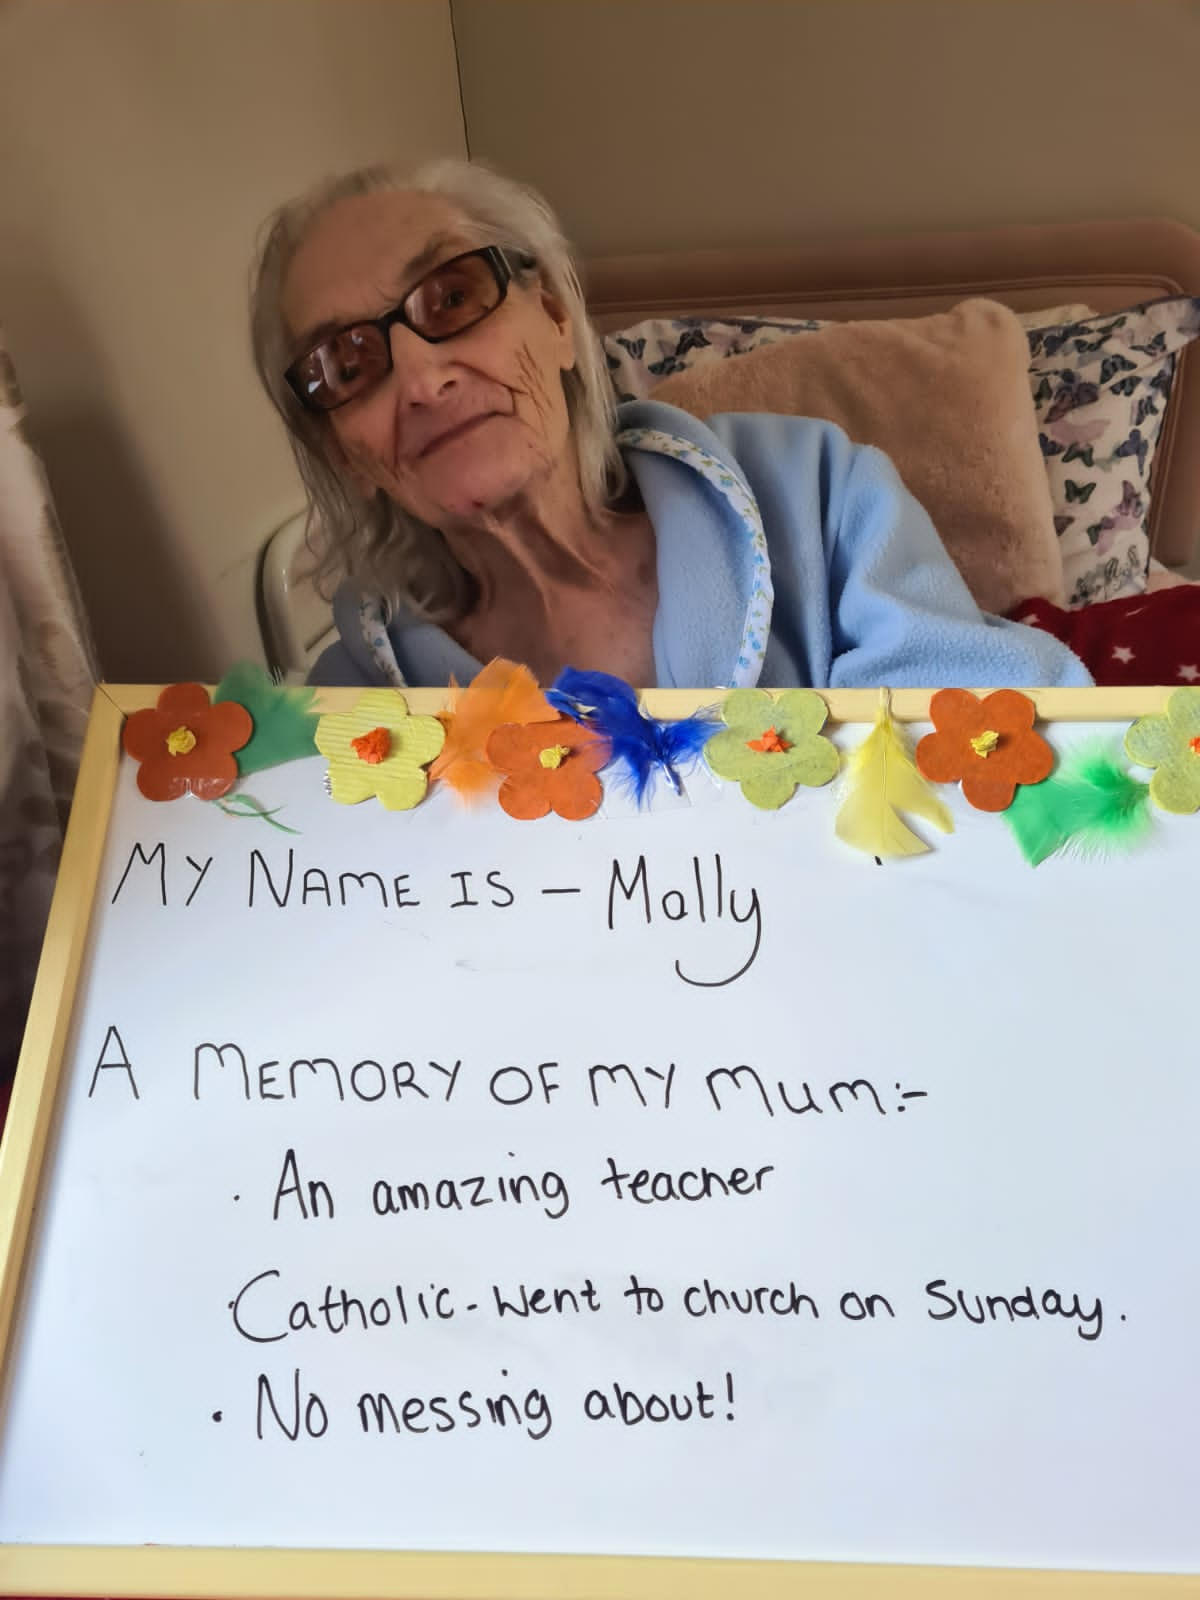 MY NAME IS - Molly
A MEMORY OF MY MUM:-
· An amazing teacher
· Catholic - Went to church on Sunday.
· No messing about!